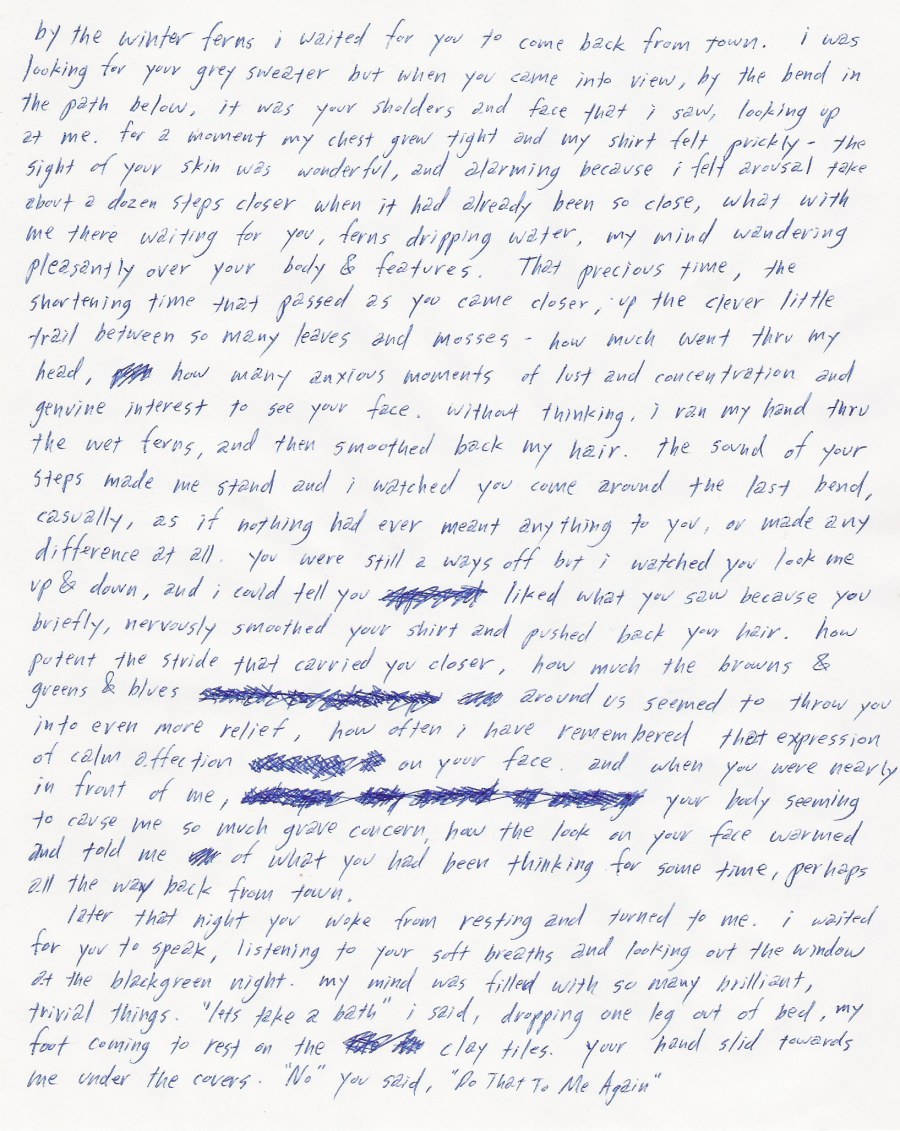 by the winter ferns i waited for you to come back from town. i was
looking for your grey sweater but when you came into view, by the bend in
the path below, it was your sholders and face that i saw, looking up
at me. for a moment my chest grew tight and my shirt felt prickly - the
sight of your skin was wonderful, and alarming because i felt arousal take
about a dozen steps closer when it had already been so close, what with
me there waiting for you, ferns dripping water, my mind wandering
pleasantly over your body & features. That precious time, the
shortening time that passed as you came closer, up the clever little
trail between so many leaves and mosses - how much went thru my
head, how many anxious moments of lust and concentration and
genuine interest to see your face. without thinking, i ran my hand thru
the wet ferns, and then smoothed back my hair. the sound of your
steps made me stand and i watched you come around the last bend,
casually, as if nothing had ever meant anything to you, or made any
difference at all. you were still a ways off but i watched you look me
up & down, and i could tell you liked what you saw because you
briefly, nervously smoothed your shirt and pushed back your hair. how
potent the stride that carried you closer, how much the browns &
greens & blues around us seemed to throw you
into even more relief, how often i have remembered that expression
of calm affection on your face. and when you were nearly
in front of me, your body seeming
to cause me so much grave concern, how the look on your face warmed
and told me of what you had been thinking for some time, perhaps
all the way back from town.
later that night you woke from resting and turned to me. i waited
for you to speak, listening to your soft breaths and looking out the window
at the blackgreen night. my mind was filled with so many brilliant,
trivial things. "lets take a bath" i said, dropping one leg out of bed, my
foot coming to rest on the clay tiles. your hand slid towards
me under the covers. "No" you said, "Do That To Me Again"